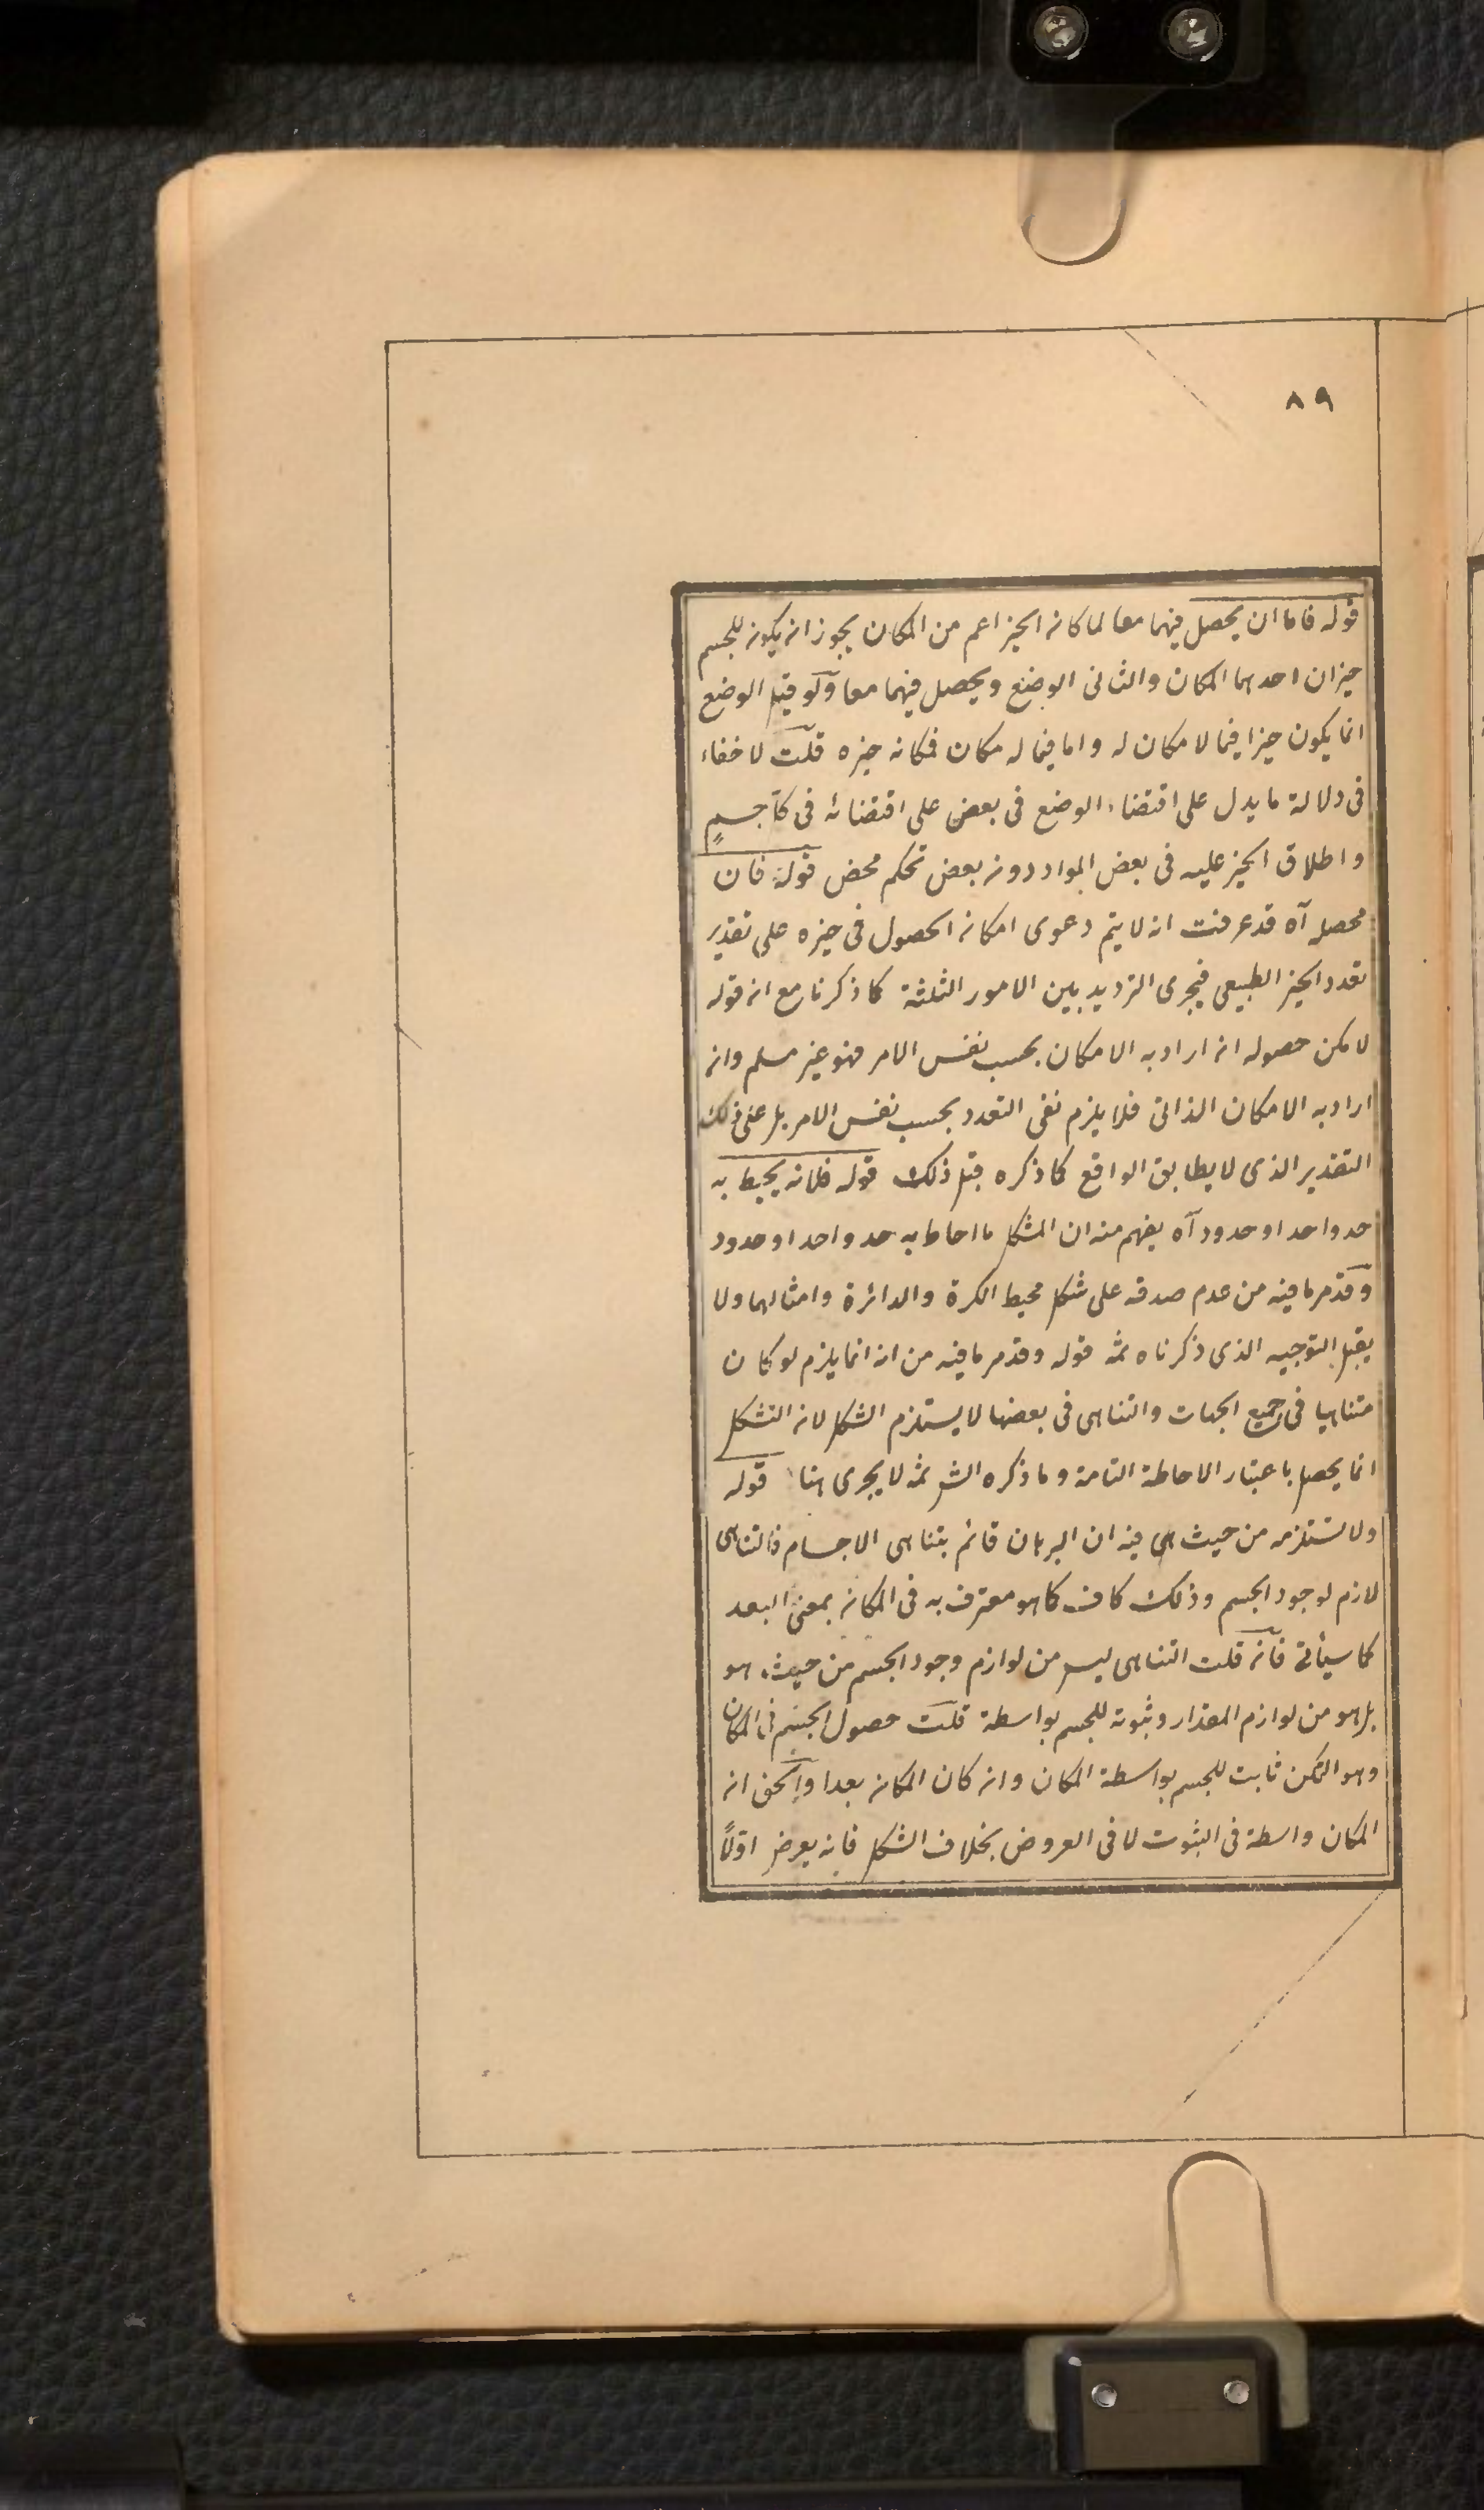 ٨٩
قوله فاما ان يحصل فيهما معا لما كان الحيز اعم من المكان يجوز ان يكون للجسم
حيزان احدهما المكان والثانى الوضع ويحصل فيهما معا ولو قيل الوضع
انما يكون حيزا فيما لا مكان له واما فيما له مكان فمكانه حيزه قلت لا خفاء
فى دلالة ما يدل على اقتضاء الوضع فى بعض على اقتضائه فى كل جسم
واطلاق الحيز عليه فى بعض المواد دون بعض تحكم محض قوله فان
محصل آه قد عرفت انه لا يتم دعوى امكان الحصول فى حيزه على تقدير
تعدد الحيز الطبيعى فيجرى الترديد بين الامور الثلثة كما ذكرنا مع ان قوله
لا مكن حصوله ان اراد به الامكان بحسب نفس الامر فهو غير مسلم وان
اراد به الامكان الذاتى فلا يلزم نفى التعدد بحسب نفس الامر بل على ذلك
التقدير الذى لا يطابق الواقع كما ذكره قبل ذلك قوله فلانه يحيط به
حد واحد او حدود آه يفهم منه ان الشكل ما احاط به حد واحد او حدود
وقد مر ما فيه من عدم صدقه على شكل محيط الكرة والدائرة وامثالهما ولا
يقبل التوجيه الذى ذكرناه ثمه قوله وقد مر ما فيه من انه انما يلزم لو كان
متناهيا فى جميع الجهات والتناهى فى بعضها لا يستلزم الشكل لان التشكل
انما يحصل باعتبار الاحاطة التامة وما ذكره الش ثمه لا يجرى هنا قوله
ولا تستلزمه من حيث هى فيه ان البرهان قائم بتناهى الاجسام فالتناهى
لازم لوجود الجسم وذلك كاف كما هو معترف به فى المكان بمعنى البعد
كما سيأتى فان قلت التناهى ليس من لوازم وجود الجسم من حيث هو
بل هو من لوازم المقدار وثبوته للجسم بواسطة قلت حصول الجسم فى المكان
وهو التمكن ثابت للجسم بواسطة المكان وان كان المكان بعدا والحق ان
المكان واسطة فى الثبوت لا فى العروض بخلاف الشكل فانه يعرض اولاً